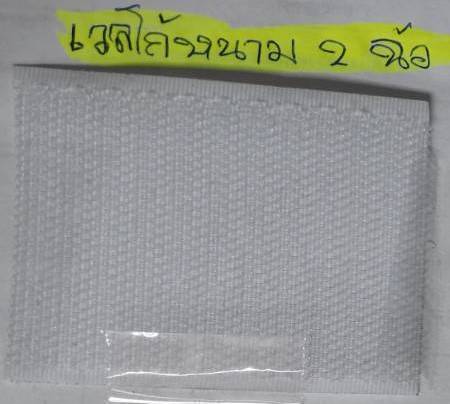 เวลโก้หนาม 2 นิ้ว